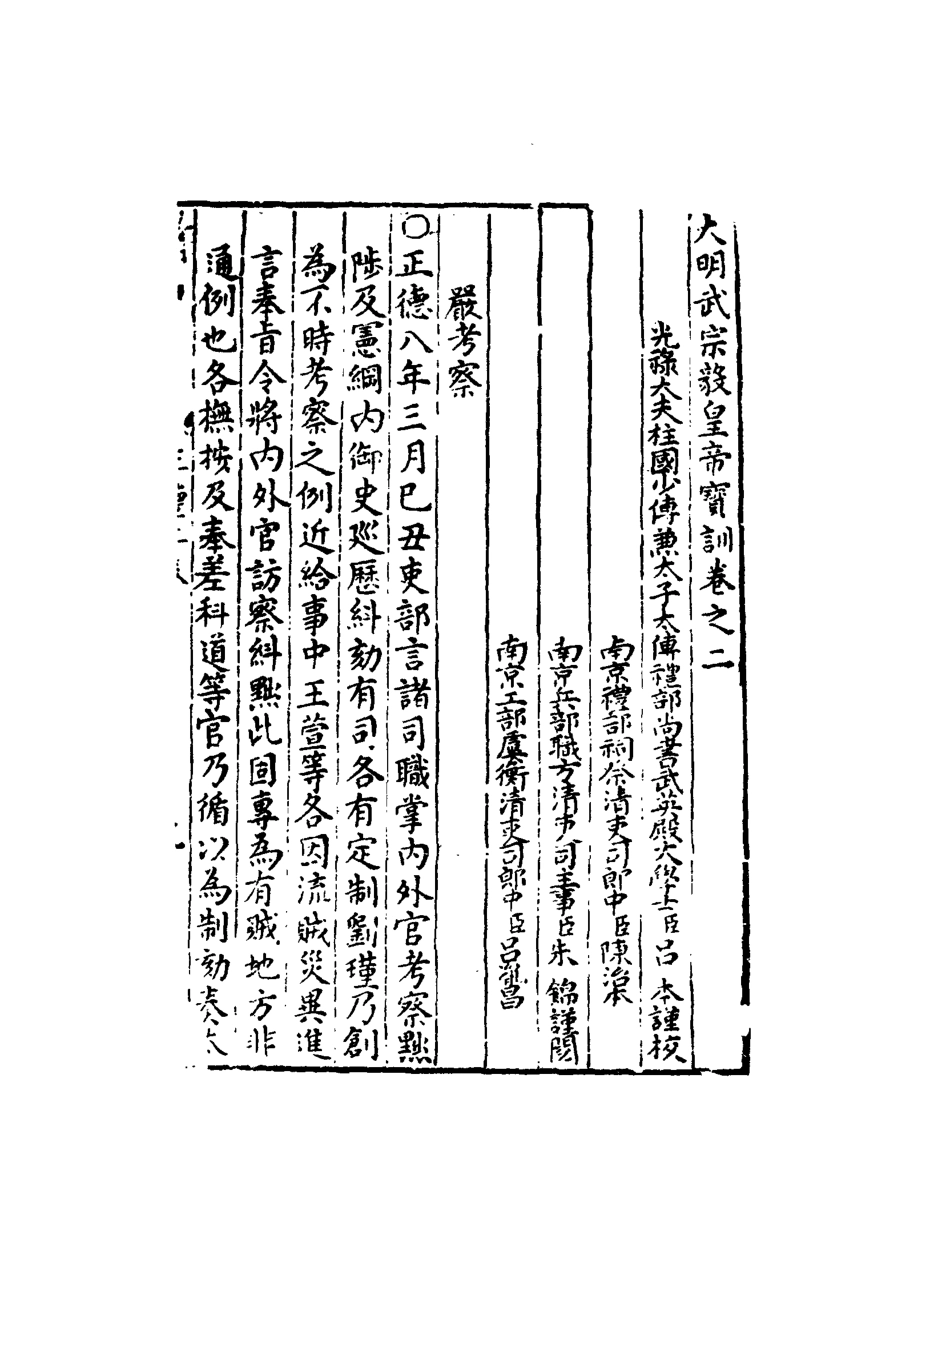 大明武宗毅皇帝寶訓卷之二
光祿大夫柱國少傅兼太子太傅禮部尚書武英殿大學士臣呂 本謹校
南京禮部祠祭清吏司郎中臣陳治本
南京兵部職方清吏司主事臣朱 錦謹閱
南京工部虞衡清吏司郎中臣呂胤昌
嚴考察
○正德八年三月己丑吏部言諸司職掌內外官考察黜
陟及憲綱內御史巡歷糾劾有司各有定制劉瑾乃創
為不時考察之例近給事中王萱等各因流賊災異進
言奉旨令將內外官訪察糾黜此固專為有賊地方非
通例也各撫按及奉差科道等官乃循以為制劾奏太